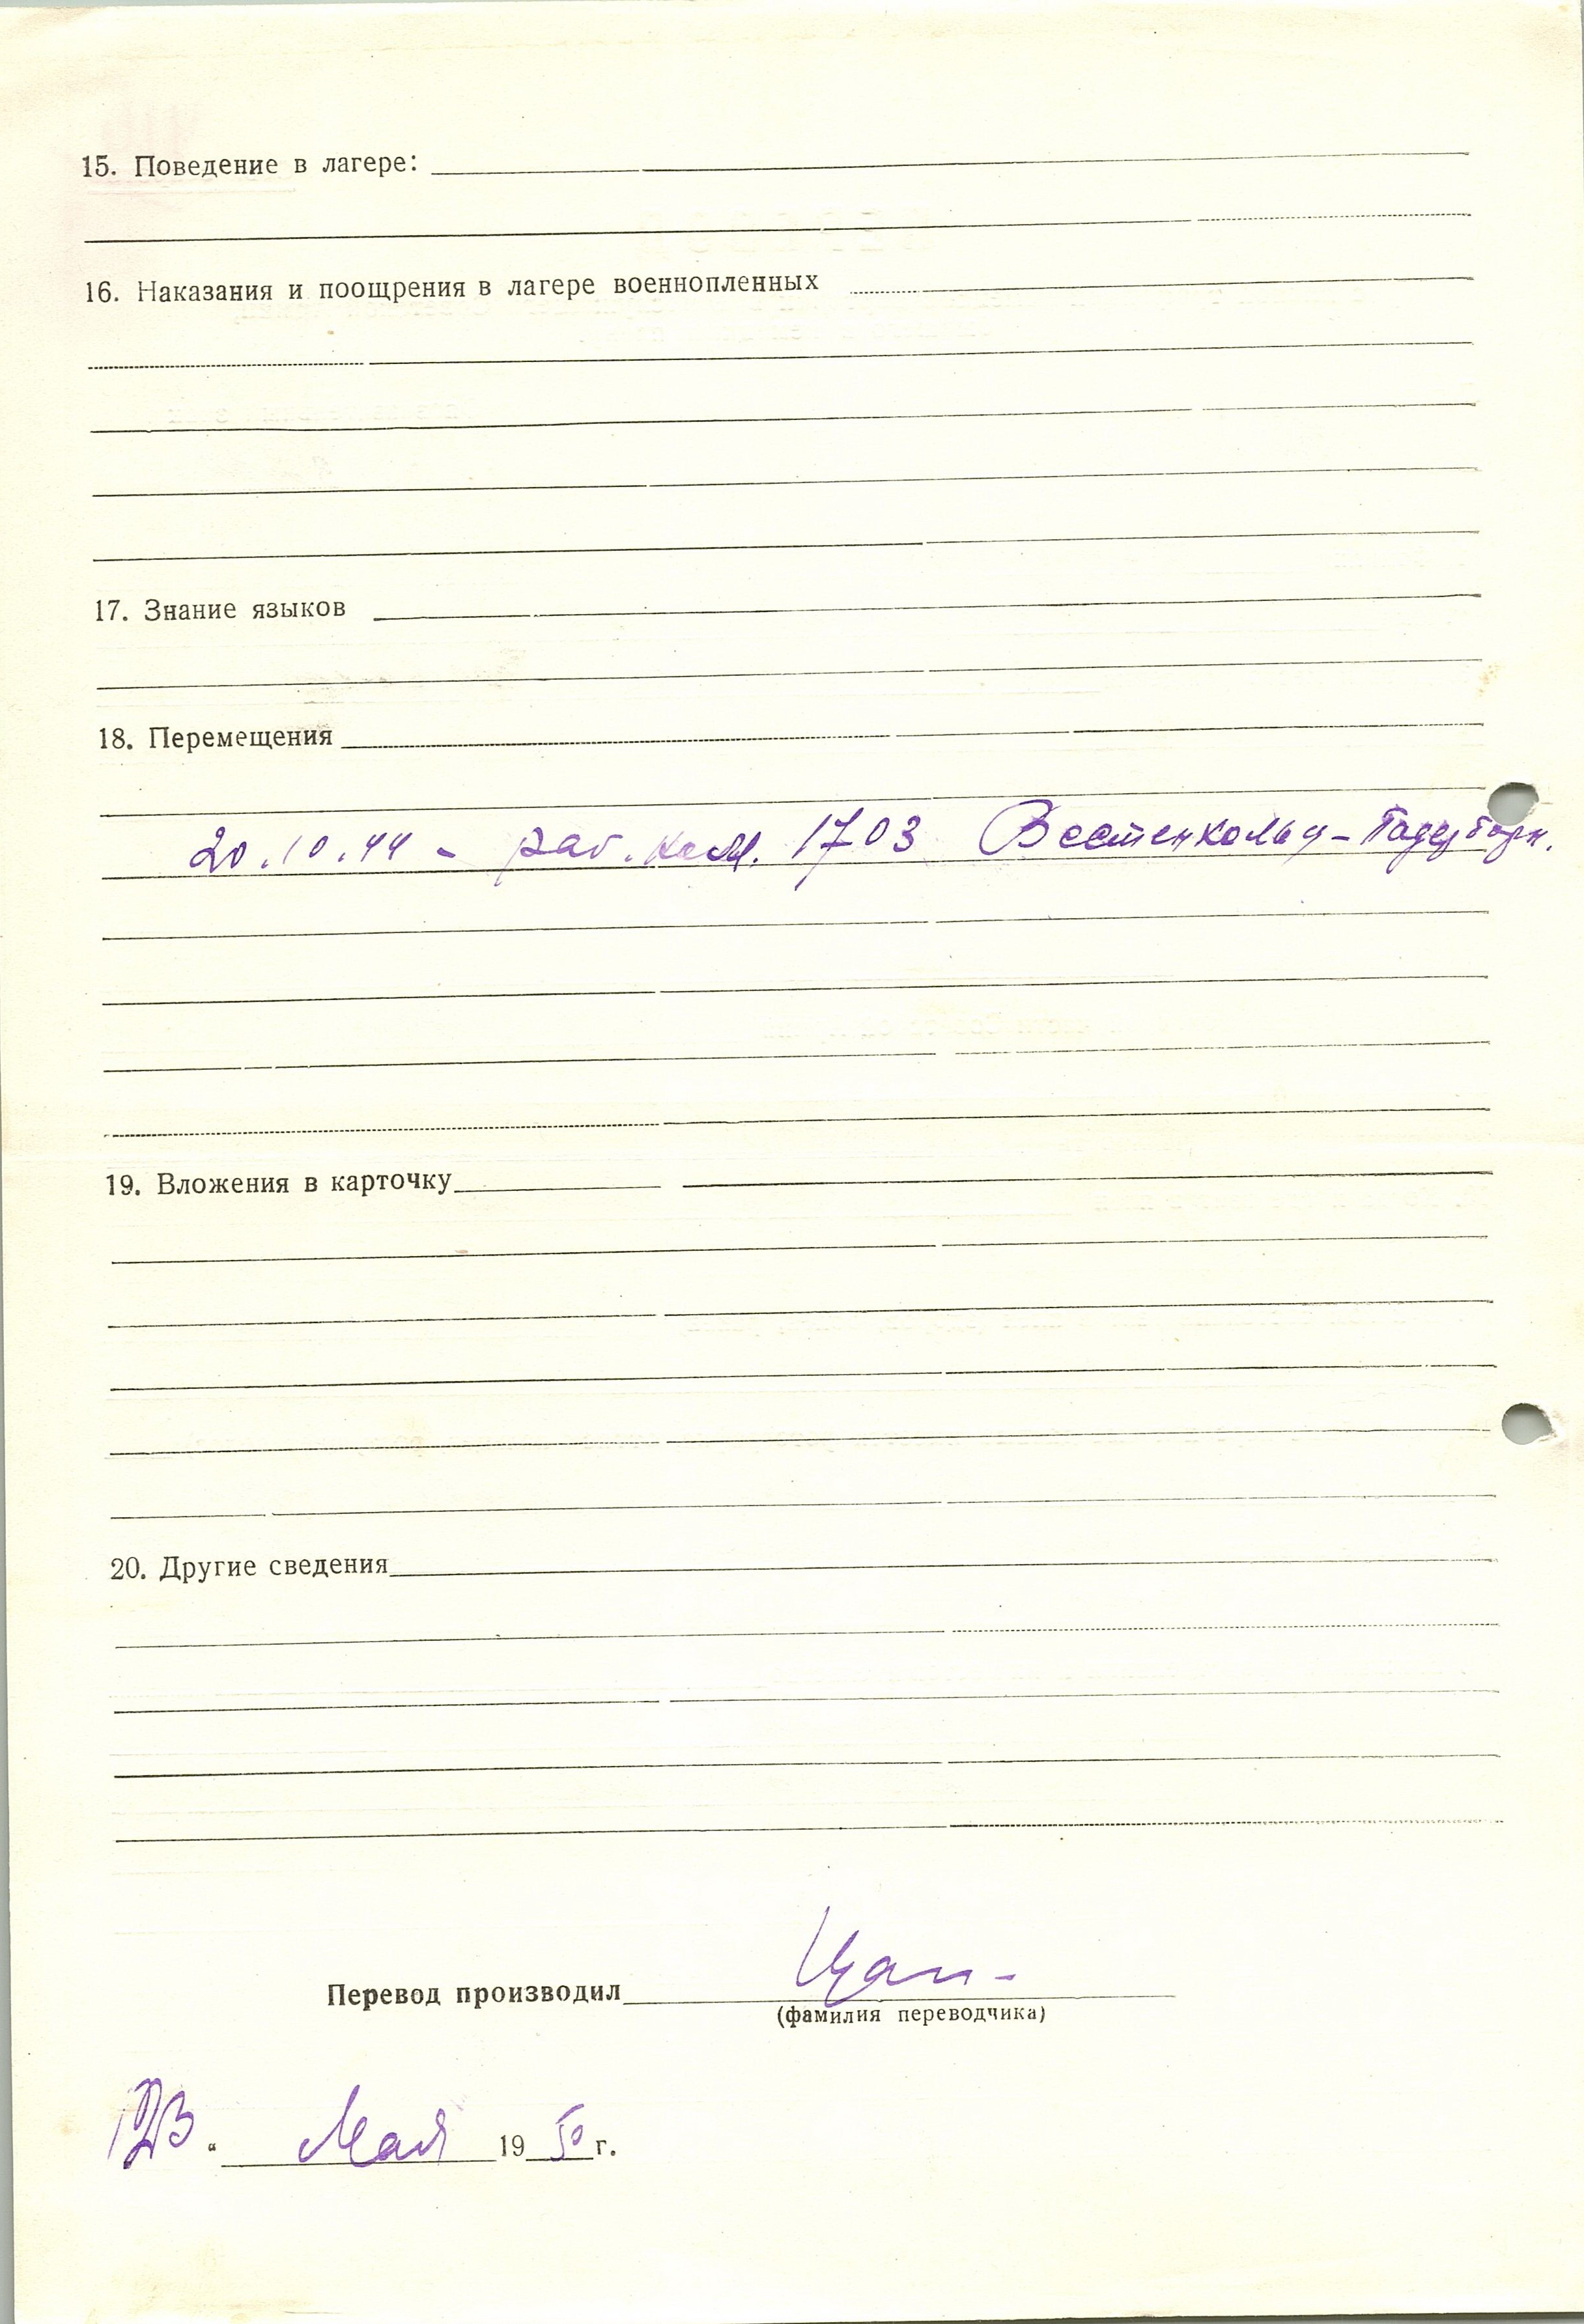 15. Поведение в лагере:
16. Наказания и поощрения в лагере военнопленных
17. Знание языков
18. Перемещения
20.10.44 - раб. ком. 1703 Вестенхольц - Падерборн.
19. Вложения в карточку
20. Другие сведения
Перевод производил
(фамилия переводчика)
23 " Мая 1950 г.